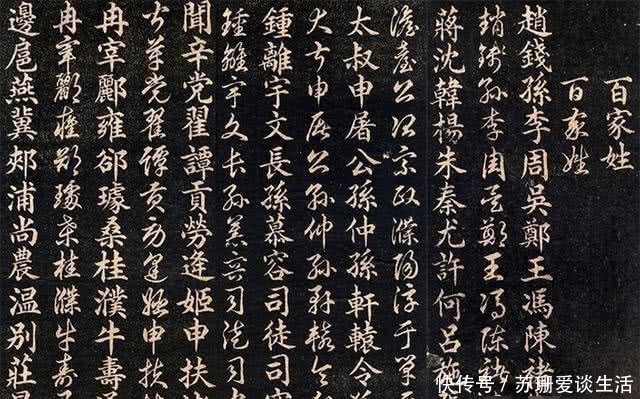 百家姓
百家姓
趙錢孫李周吳鄭王馮陳褚
趙錢孫李周吳鄭王馮陳褚
蔣沈韓楊朱秦尤許何呂施
澹臺公冶宗政濮陽淳于單于
太叔申屠公孫仲孫軒轅令
太叔申屠公孫仲孫軒轅令
鍾離宇文長孫慕容司徒司
鍾離宇文長孫慕容司徒司
聞辛党翟譚貢勞逄姬申扶
聞莘党翟譚貢勞逄姬申扶
冉宰酈雍郤璩桑桂濮牛壽通
冉宰酈雍郤璩桑桂濮牛壽
邊扈燕冀郟浦尚農温別莊
快传号／苏珊爱谈生活